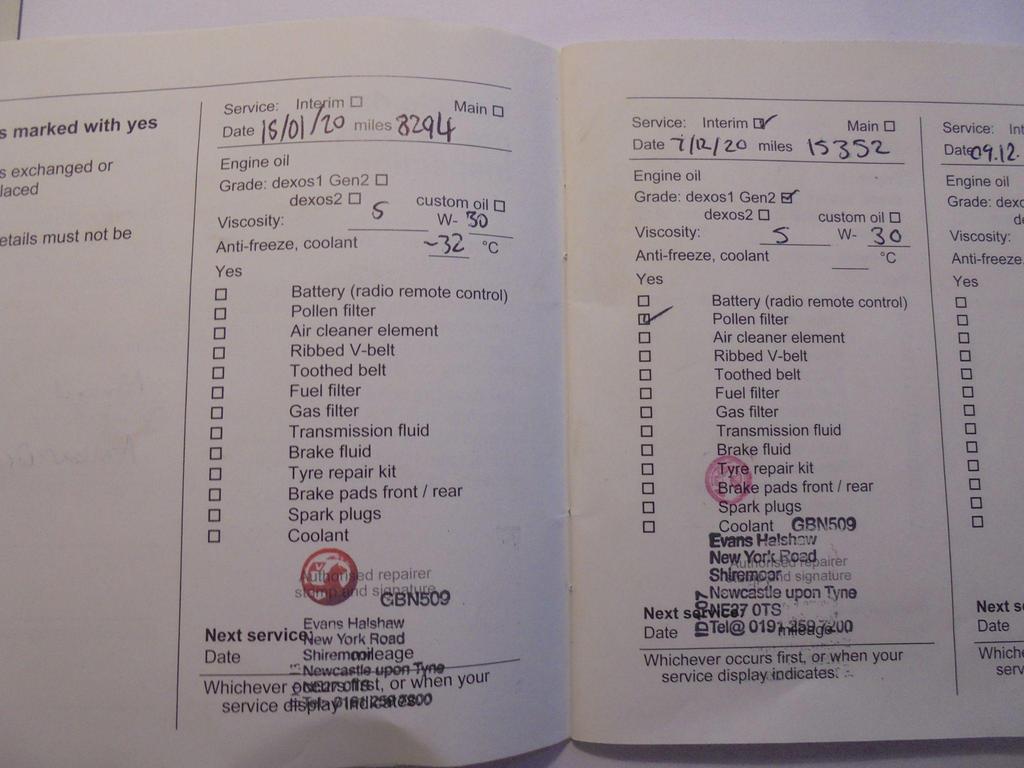 s marked with yes
s exchanged or
laced
etails must not be
Service: Interim Main
Date 15/01/20 miles 8294
Engine oil
Grade: dexos1 Gen2
dexos2 custom oil
Viscosity: 5 W- 30
Anti-freeze, coolant -32 °C
Yes
Battery (radio remote control)
Pollen filter
Air cleaner element
Ribbed V-belt
Toothed belt
Fuel filter
Gas filter
Transmission fluid
Brake fluid
Tyre repair kit
Brake pads front / rear
Spark plugs
Coolant
Authorised repairer
stamp and signature
GBN509
Evans Halshaw
New York Road
Shiremoor
Newcastle upon Tyne
NE27 0TS
Tel@ 0191 259 7200
Next service:
Date mileage
Whichever occurs first, or when your
service display indicates.
Service: Interim Main
Date 7/12/20 miles 15352
Engine oil
Grade: dexos1 Gen2
dexos2 custom oil
Viscosity: 5 W- 30
Anti-freeze, coolant °C
Yes
Battery (radio remote control)
Pollen filter
Air cleaner element
Ribbed V-belt
Toothed belt
Fuel filter
Gas filter
Transmission fluid
Brake fluid
Tyre repair kit
Brake pads front / rear
Spark plugs
Coolant GBN509
Evans Halshaw
New York Road
Authorised repairer
Shiremoor
stamp and signature
Newcastle upon Tyne
NE27 0TS
Tel@ 0191 259 7200
Next service:
Date mileage
Whichever occurs first, or when your
service display indicates.
Service: Int
Date 09.12.
Engine oil
Grade: dexo
de
Viscosity:
Anti-freeze,
Yes
Next se
Date
Whiche
serv